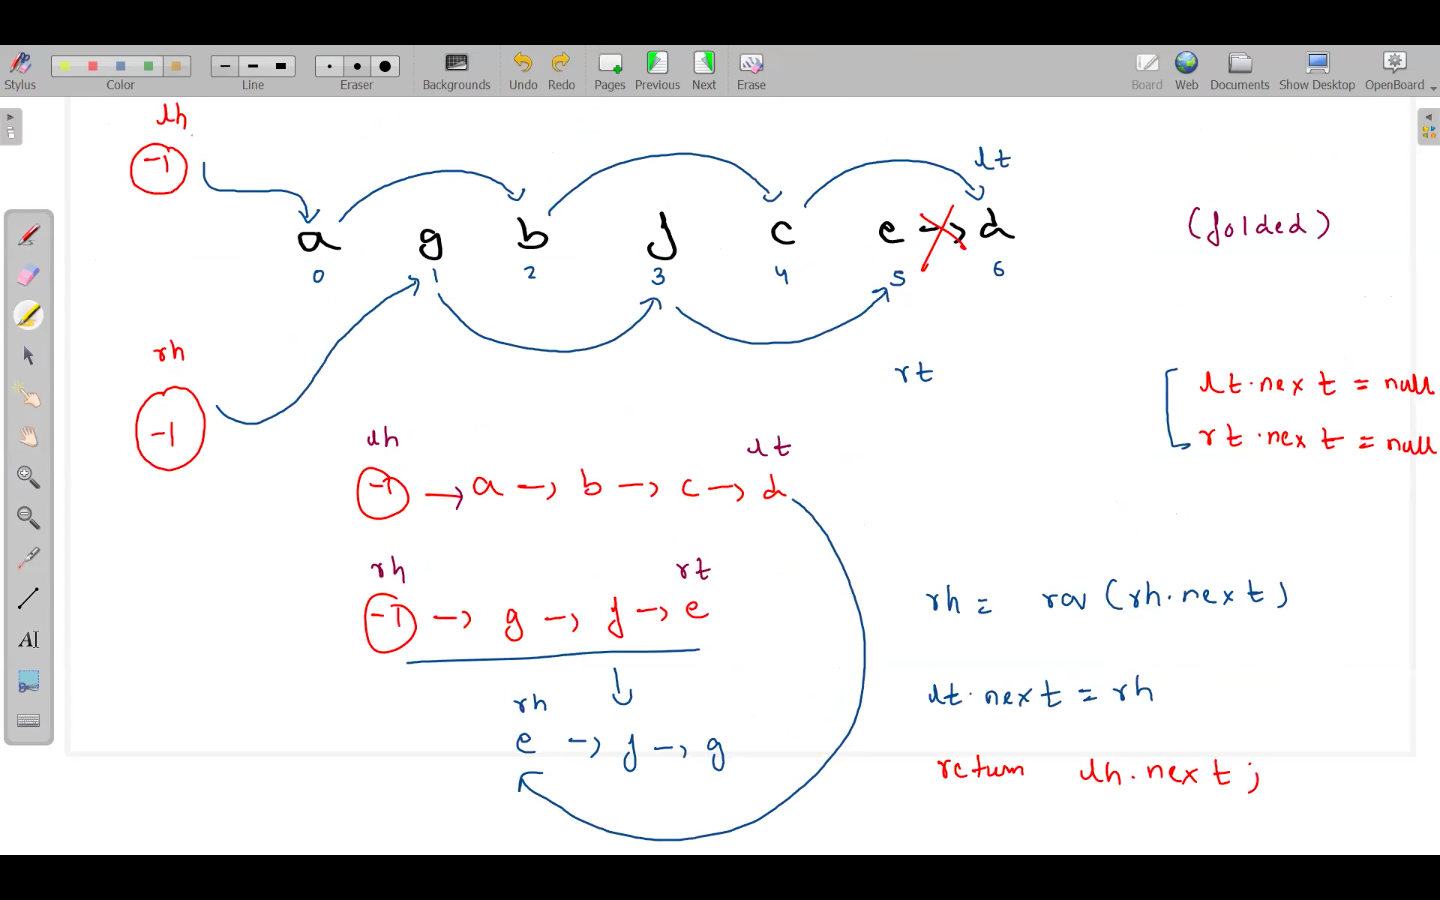 Stylus Color Line Eraser Backgrounds Undo Redo Pages Previous Next Erase Board Web Documents Show Desktop OpenBoard
lh
-1
lt
a g b f c e -> d
0 1 2 3 4 5 6
(folded)
rh
-1
rt
lt.next = null
rt.next = null
lh lt
-1 -> a -> b -> c -> d
rh rt
-1 -> g -> f -> e
rh = rev (rh.next)
rh
e -> f -> g
lt.next = rh
return lh.next;
AI